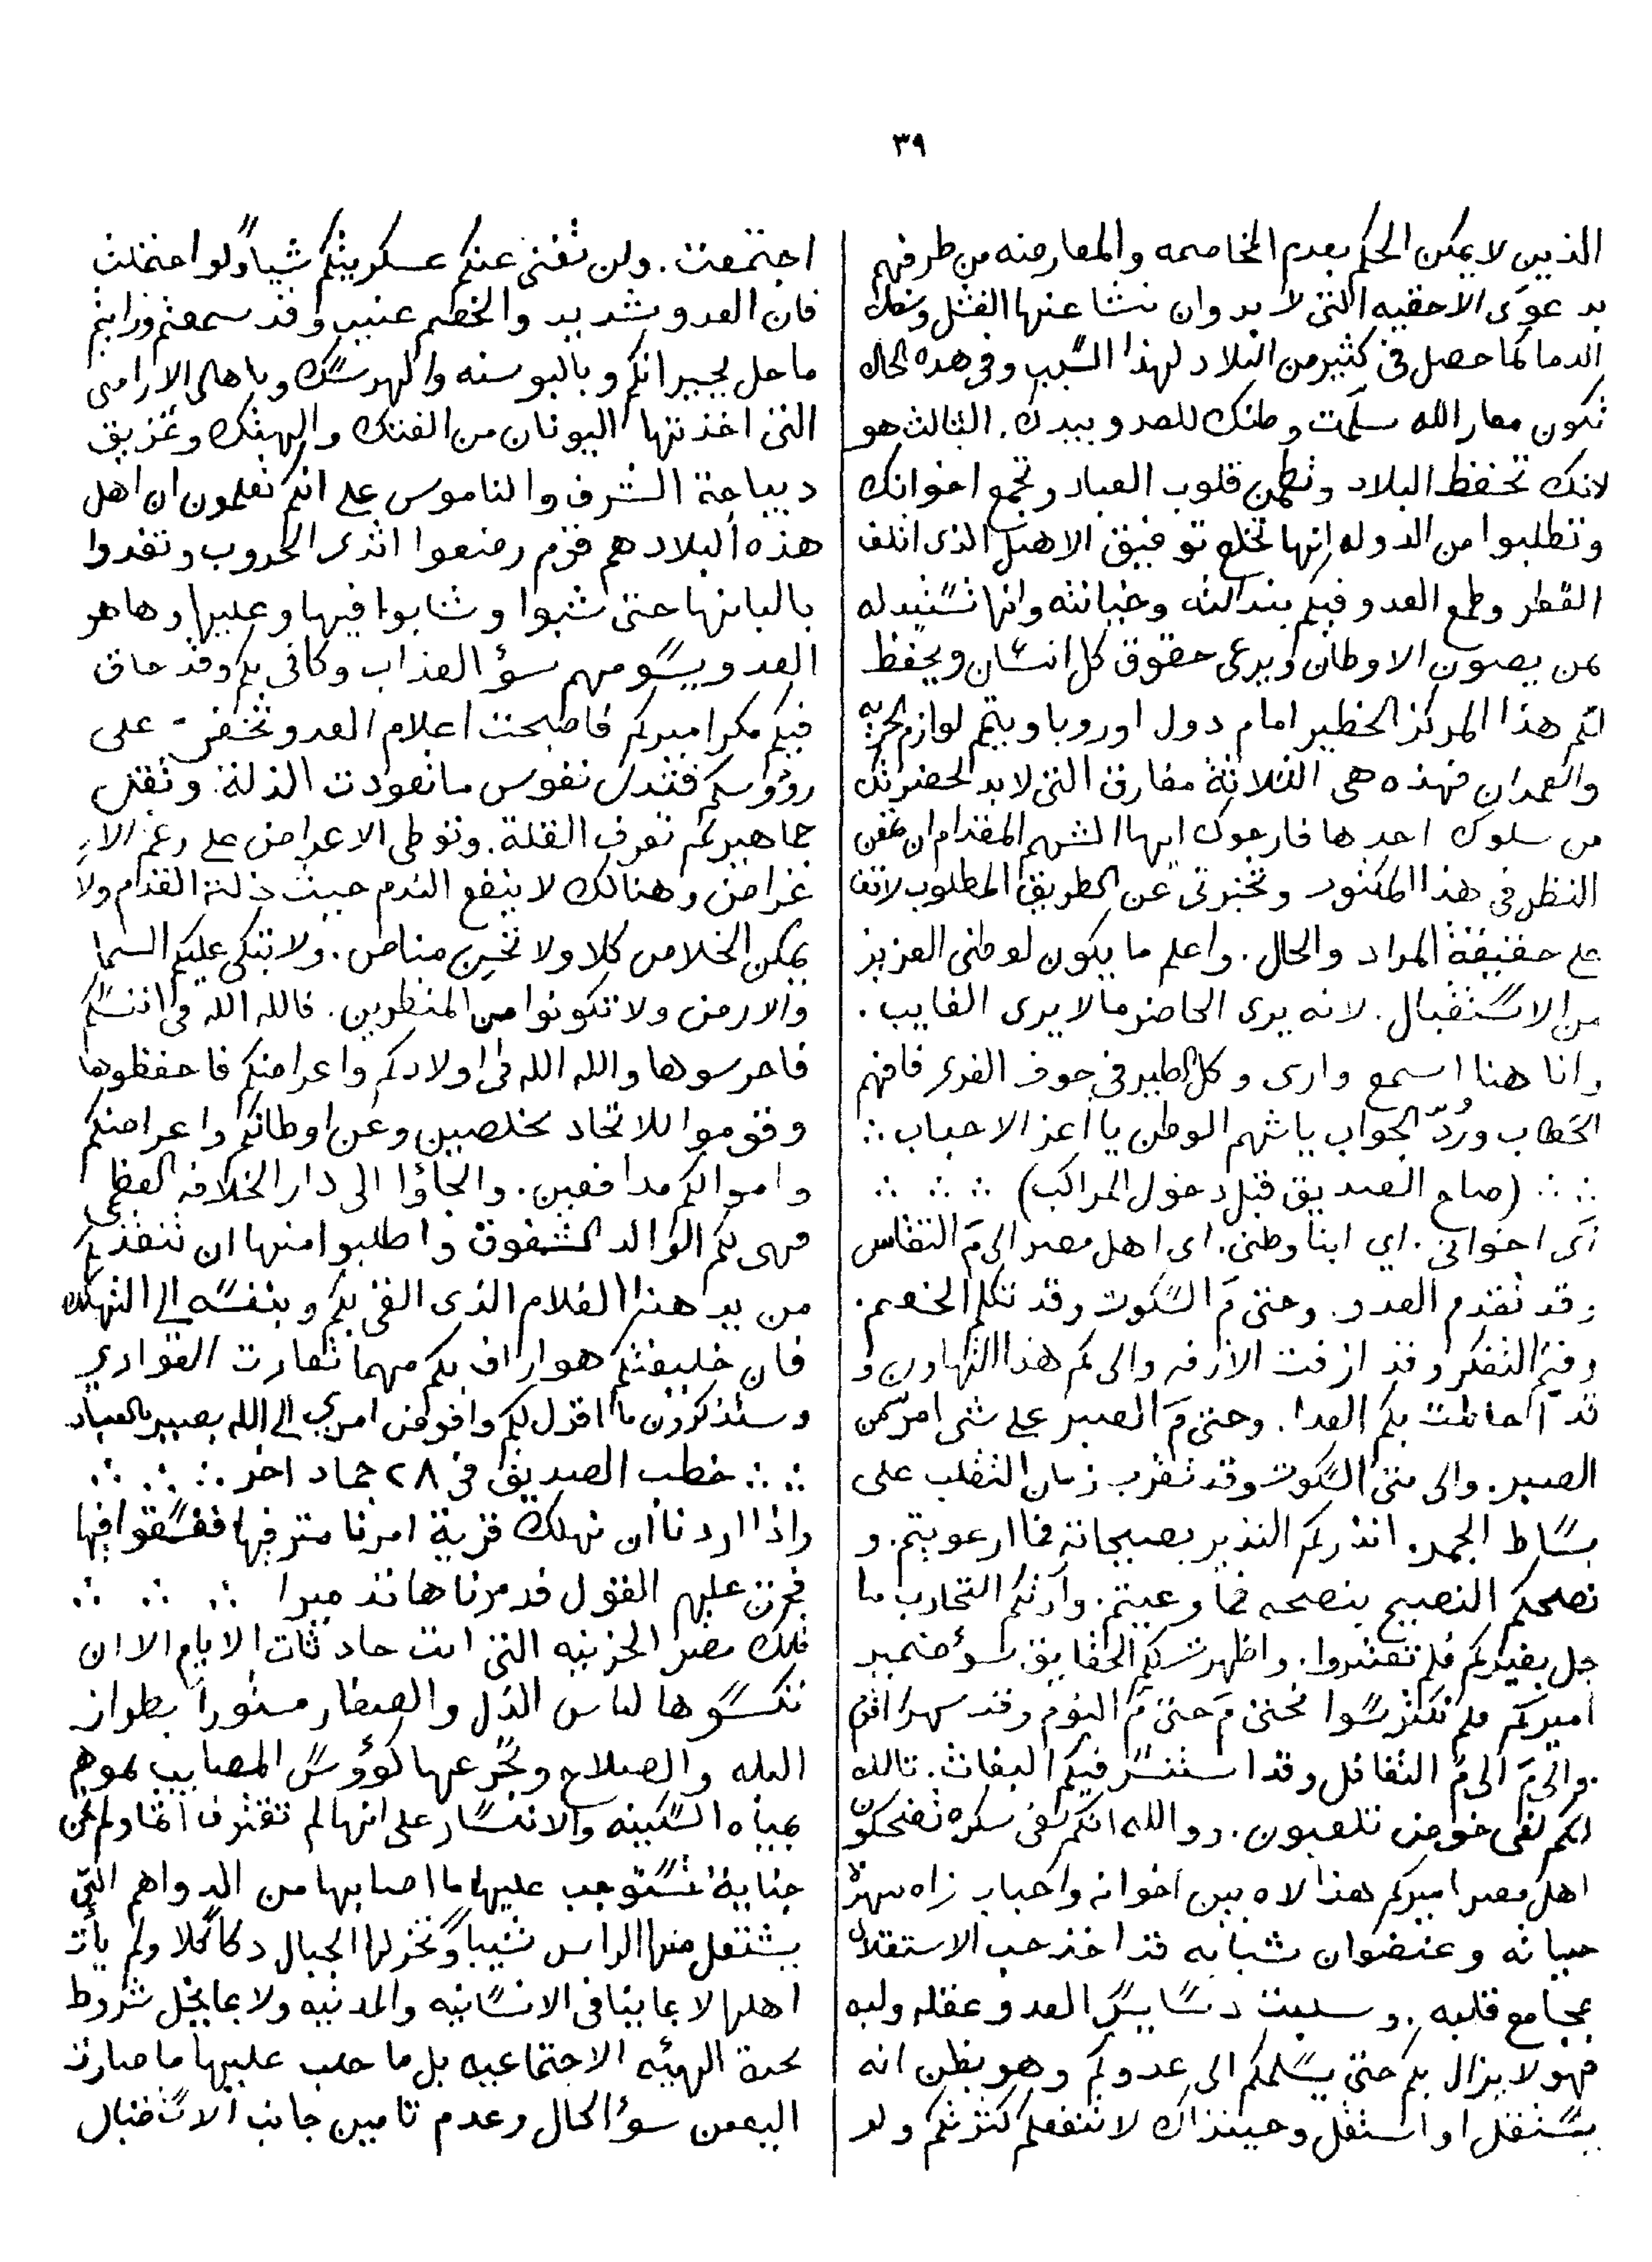 ٣٩
الذين لا يمكن الحكم بعدم المخاصمه والمعارضه من طرفهم
بدعوى الاحقيه التى لا بد وان ينشا عنها القتل وسفك
الدما كما حصل فى كثير من البلاد لهذا السبب وفى هذه الحاله
تكون معاذ الله سلمت وطنك للعدو بيدك. الثالث هو
لانك تحفظ البلاد وتطمن قلوب العباد وتجمع اخوانك
وتطلبوا من الدوله انها تخلع توفيق الاهبل الذى اتلف
القطر وطمع العدو فيكم بندالته وخيانته وانها تستبدله
بمن يصون الاوطان ويرعى حقوق كل انسان ويحفظ
لكم هذا المركز الخطير امام دول اوروبا ويتم لوازم الحريه
والعمدان فهذه هى الثلاثة مفارق التى لا بد لحضرتك
من سلوك احدها فارجوك ايها الشهم المقدام ان تمعن
النظر فى هذا المنثور وتخبرنى عن الطريق المطلوب لاقف
على حقيقة المراد والحال. واعلم ما يكون لوطنى العزيز
من الاستقبال. لانه يرى الحاضر ما لا يرى الغايب.
وانا هنا اسمع وارى وكل الطير فى جوف الفرى فافهم
الخطاب ورد الجواب يا شهم الوطن يا اعز الاحباب ∴
∴ ∴ (صاح الصديق قبل دخول المراكب) ∴ ∴ ∴
اى اخوانى. اى ابنا وطنى. اى اهل مصر الى م التقاعس
وقد تقدم العدو. وحتى م السكوت وقد تكلم الخصم.
وفيم التفكر وقد ازفت الازفه والى كم هذا التهاون و
قد احاطت بكم العدا. وحتى م الصبر على شى امر من
الصبر. والى متى السكوت وقد تقرب زمان التقلب على
بساط الجمر. انذركم النذير بصيحاته فما ارعويتم. و
نصحكم النصيح بنصحه فما وعيتم. وارتكم التجارب ما
حل بغيركم فلم تعتبروا. واظهرت لكم الحقايق سوء ضمير
اميركم فلم تكترسوا فحتى م حتى م النوم وقد سهرا
والى م الى م التغافل وقد استنسر فيكم البغاث. تالله
انكم لفى خوض تلعبون. ووالله انكم لفى سكره تضحكون
اهل مصر اميركم هذا لاه بين اخوانه واحبابه زاه بزهرة
حياته وعنفوان شبابه قد اخذ حب الاستقلال
بمجامع قلبه. وسلبت دسايس العدو عقله ولبه
فهو لا يزال بكم حتى يسلمكم الى عدوكم وهو يظن انه
يستقل او استقل وحينذاك لا تنفعكم كثرتكم ولو
اجتمعت. ولن تغنى عنكم عسكريتكم شيا ولو احتفلت
فان العدو شديد والخصم عنيد وقد سمعتم ورايتم
ما حل بجيرانكم وبالبوسنه والهرسك وباهالى الاراضى
التى اخذتها اليونان من الفتك والهتك وتمزيق
ديباجة الشرف والناموس على انكم تعلمون ان اهل
هذه البلاد هم قوم رضعوا اثدى الحروب وتغذوا
بالبانها حتى شبوا وشابوا فيها وعليها وها هو
العدو يسومهم سؤ العذاب وكانى بكم وقد حاق
فيكم مكر اميركم فاصبحت اعلام العدو تخفق على
رؤوسكم فتذل نفوس ما تعودت الذلة. وتقل
جماهير لم تعرف القلة. وتوطى الاعراض على رغم الا
غراض وهنالك لا ينفع الندم حيث ذلة القدم ولا
يمكن الخلاص كلا ولا تحين مناص. ولا تبكى عليكم السما
والارض ولا تكونوا من المنظرين. فالله الله فى انفسكم
فاحرسوها والله الله فى اولادكم واعراضكم فاحفظوها
وقوموا للاتحاد مخلصين وعن اوطانكم واعراضكم
واموالكم مدافعين. والجاؤا الى دار الخلافه العظمى
فهى لكم الوالد الشفوق واطلبوا منها ان تنقذكم
من يد هذا الغلام الذى القى بكم وبنفسه الى التهلكه
فان خليفتكم هو اراف بكم مهما تعادت العوادى
وستذكرون ما اقول لكم وافوض امرى الى الله بصير بالعباد
∴ ∴ خطب الصديق فى ٢٨ جماد اخر ∴ ∴ ∴
واذا اردنا ان نهلك قرية امرنا مترفيها ففسقوا فيها
فحق عليهم القول فدمرناها تدميرا ∴ ∴ ∴
تلك مصر الحزينه التى ابت حادثات الايام الا ان
تكسوها لباس الذل والصغار منثورا بطراز
البله والصلاح وتجرعها كؤوس المصايب بموهم
بمياه السكينه والانكسار على انها لم تقترف اثما ولم تجن
جناية تستوجب عليها ما اصابها من الدواهم التى
يشتعل منها الراس شيبا وتخر لها الجبال دكا كلا ولم يات
اهلها لا بما ينافى الانسانيه والمدنيه ولا بما يخل شروط
صحة الهيئه الاجتماعيه بل ما جلب عليها ما صارت
اليه من سؤ الحال وعدم تامين جانب الاستقبال